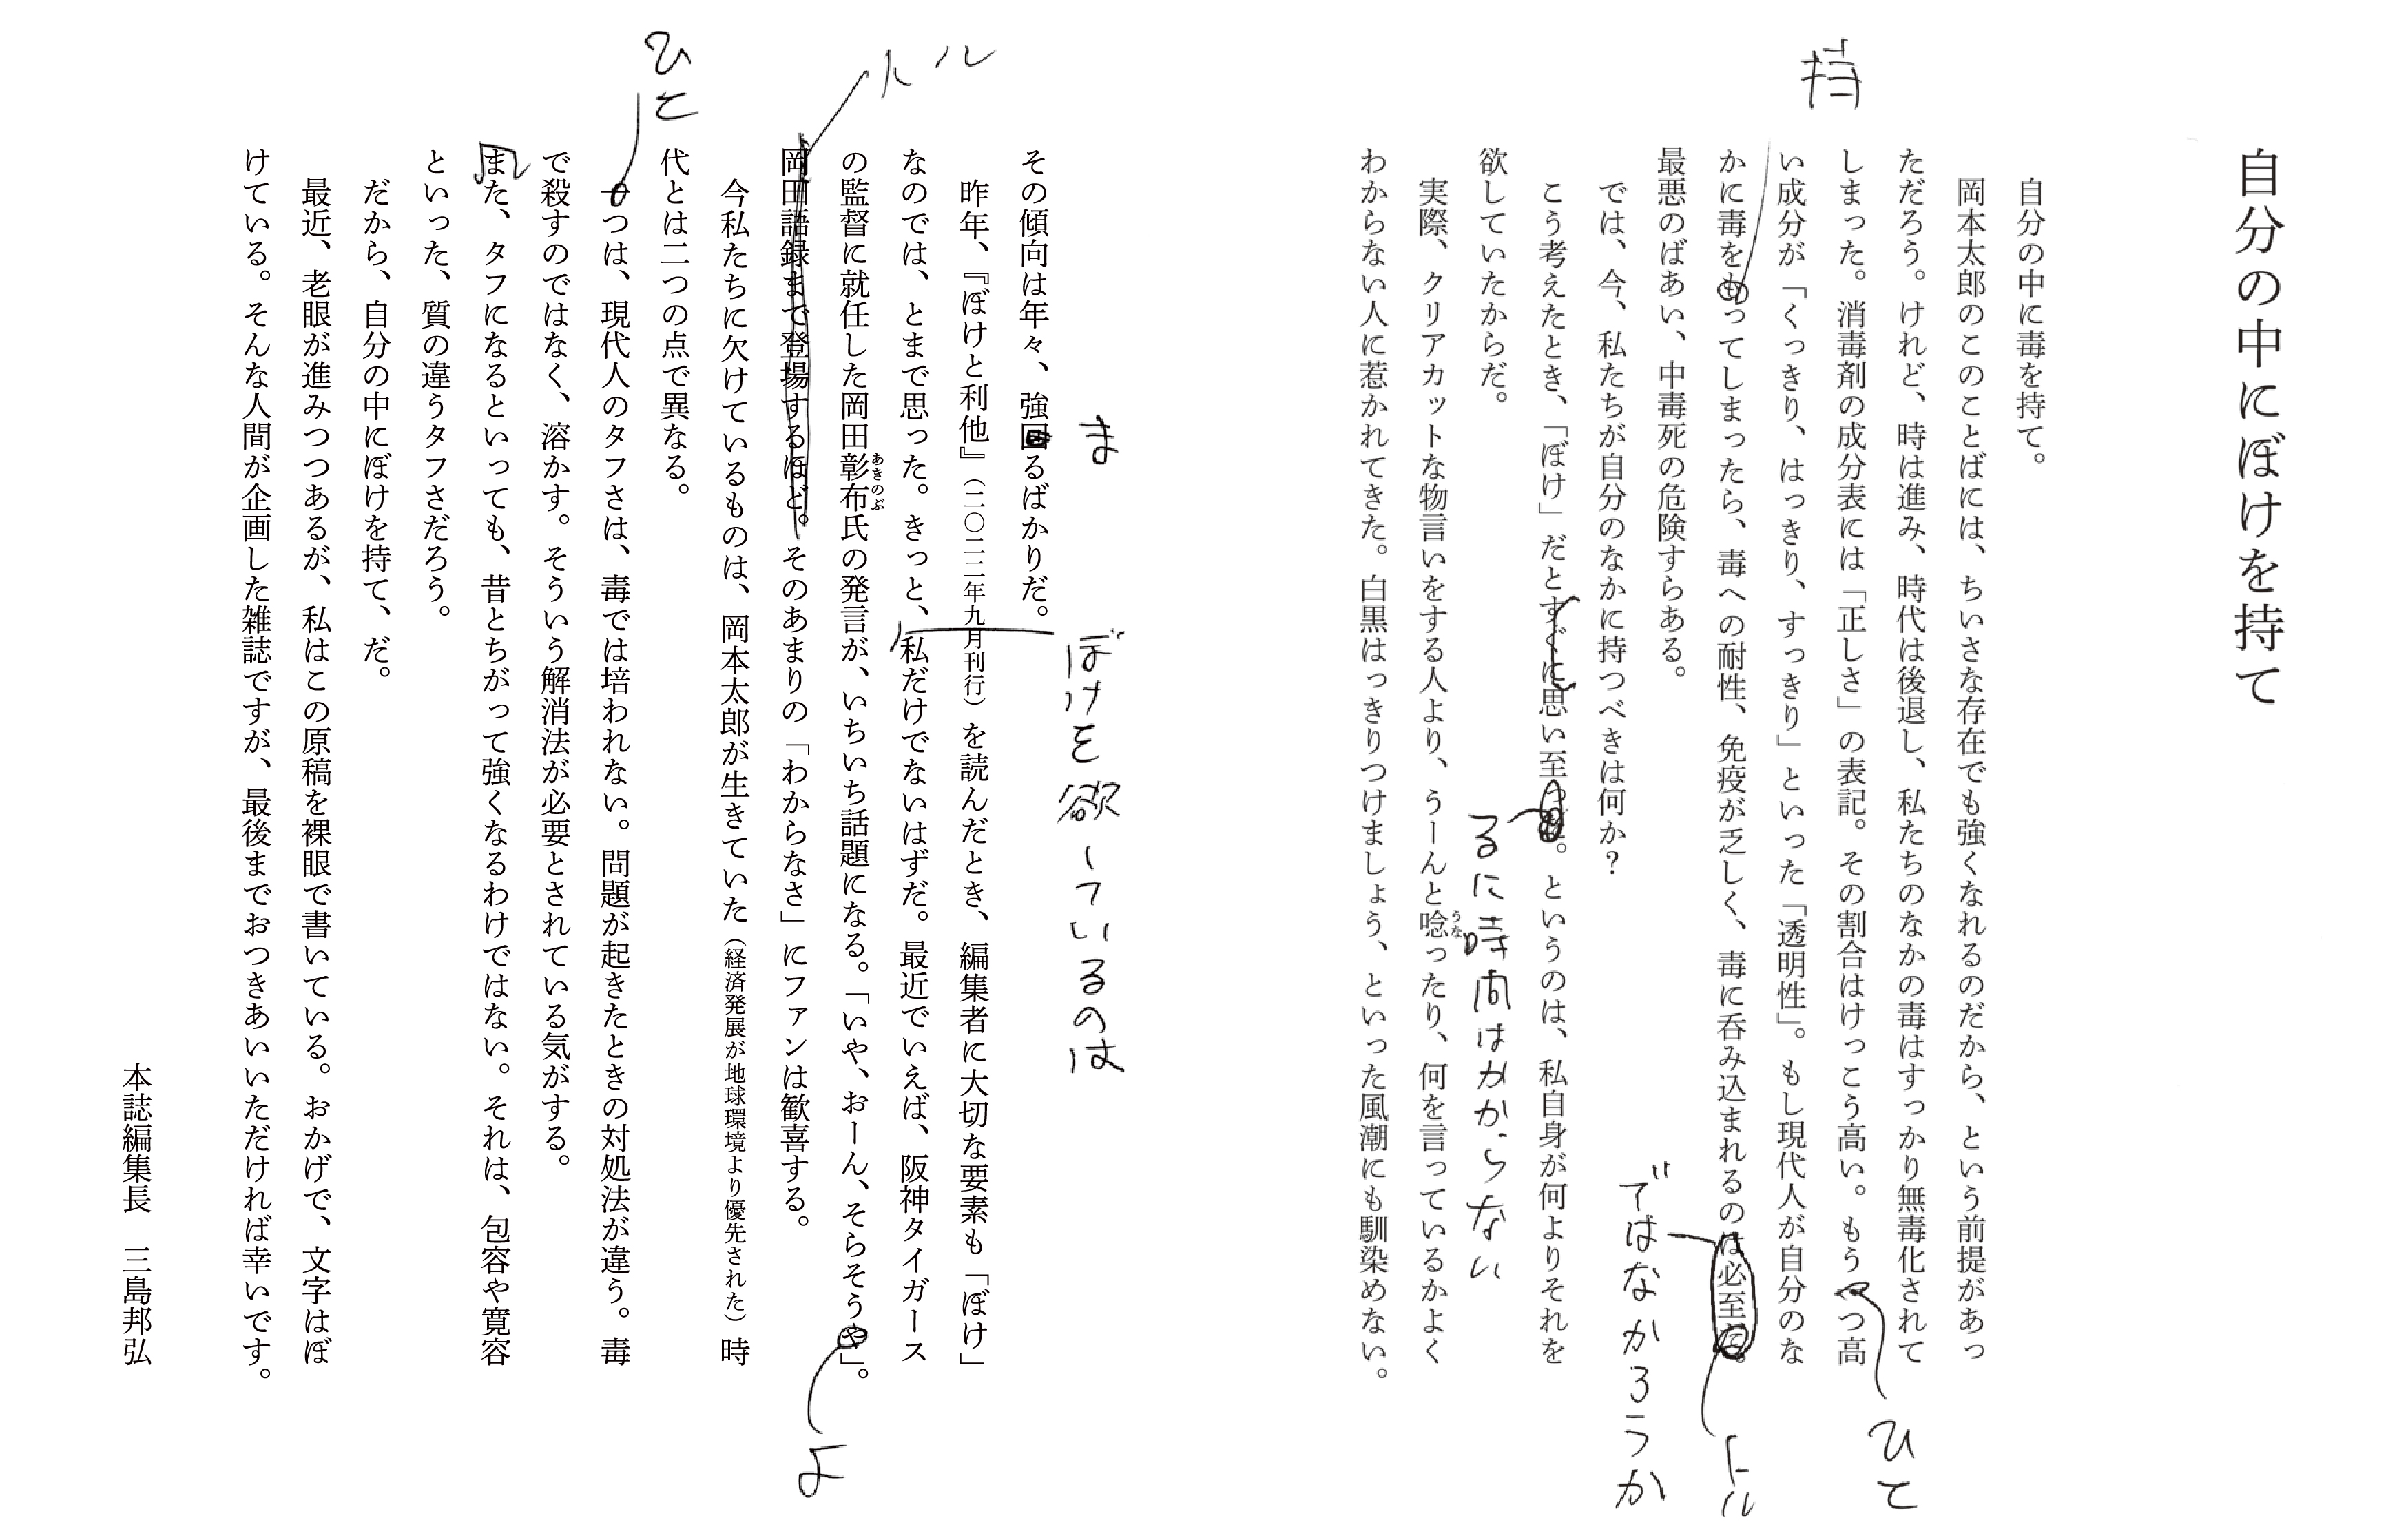 自分の中にぼけを持て
自分の中に毒を持て。
岡本太郎のこのことばには、ちいさな存在でも強くなれるのだから、という前提があっ
ただろう。けれど、時は進み、時代は後退し、私たちのなかの毒はすっかり無毒化されて
しまった。消毒剤の成分表には「正しさ」の表記。その割合はけっこう高い。もう一つ高
ひと
い成分が「くっきり、はっきり、すっきり」といった「透明性」。もし現代人が自分のな
持
かに毒をもってしまったら、毒への耐性、免疫が乏しく、毒に呑み込まれるのは必至だ。
トル
ではなかろうか
最悪のばあい、中毒死の危険すらある。
では、今、私たちが自分のなかに持つべきは何か？
こう考えたとき、「ぼけ」だとすぐに思い至った。というのは、私自身が何よりそれを
るに時間はかからない
欲していたからだ。
実際、クリアカットな物言いをする人より、うーんと唸ったり、何を言っているかよく
うな
わからない人に惹かれてきた。白黒はっきりつけましょう、といった風潮にも馴染めない。
ま
ぼけを欲しているのは
その傾向は年々、強固るばかりだ。
昨年、『ぼけと利他』（二〇二二年九月刊行）を読んだとき、編集者に大切な要素も「ぼけ」
なのでは、とまで思った。きっと、私だけでないはずだ。最近でいえば、阪神タイガース
の監督に就任した岡田彰布氏の発言が、いちいち話題になる。「いや、おーん、そらそうや」。
あきのぶ
よ
トル
岡田語録まで登場するほど。そのあまりの「わからなさ」にファンは歓喜する。
今私たちに欠けているものは、岡本太郎が生きていた（経済発展が地球環境より優先された）時
代とは二つの点で異なる。
ひと
一つは、現代人のタフさは、毒では培われない。問題が起きたときの対処法が違う。毒
で殺すのではなく、溶かす。そういう解消法が必要とされている気がする。
また、タフになるといっても、昔とちがって強くなるわけではない。それは、包容や寛容
といった、質の違うタフさだろう。
だから、自分の中にぼけを持て、だ。
最近、老眼が進みつつあるが、私はこの原稿を裸眼で書いている。おかげで、文字はぼ
けている。そんな人間が企画した雑誌ですが、最後までおつきあいいただければ幸いです。
本誌編集長　三島邦弘